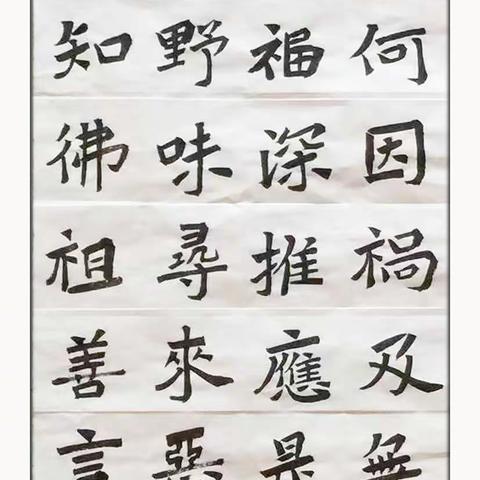 何因禍及無
福深推應是
野味尋來惡
知彿祖善言